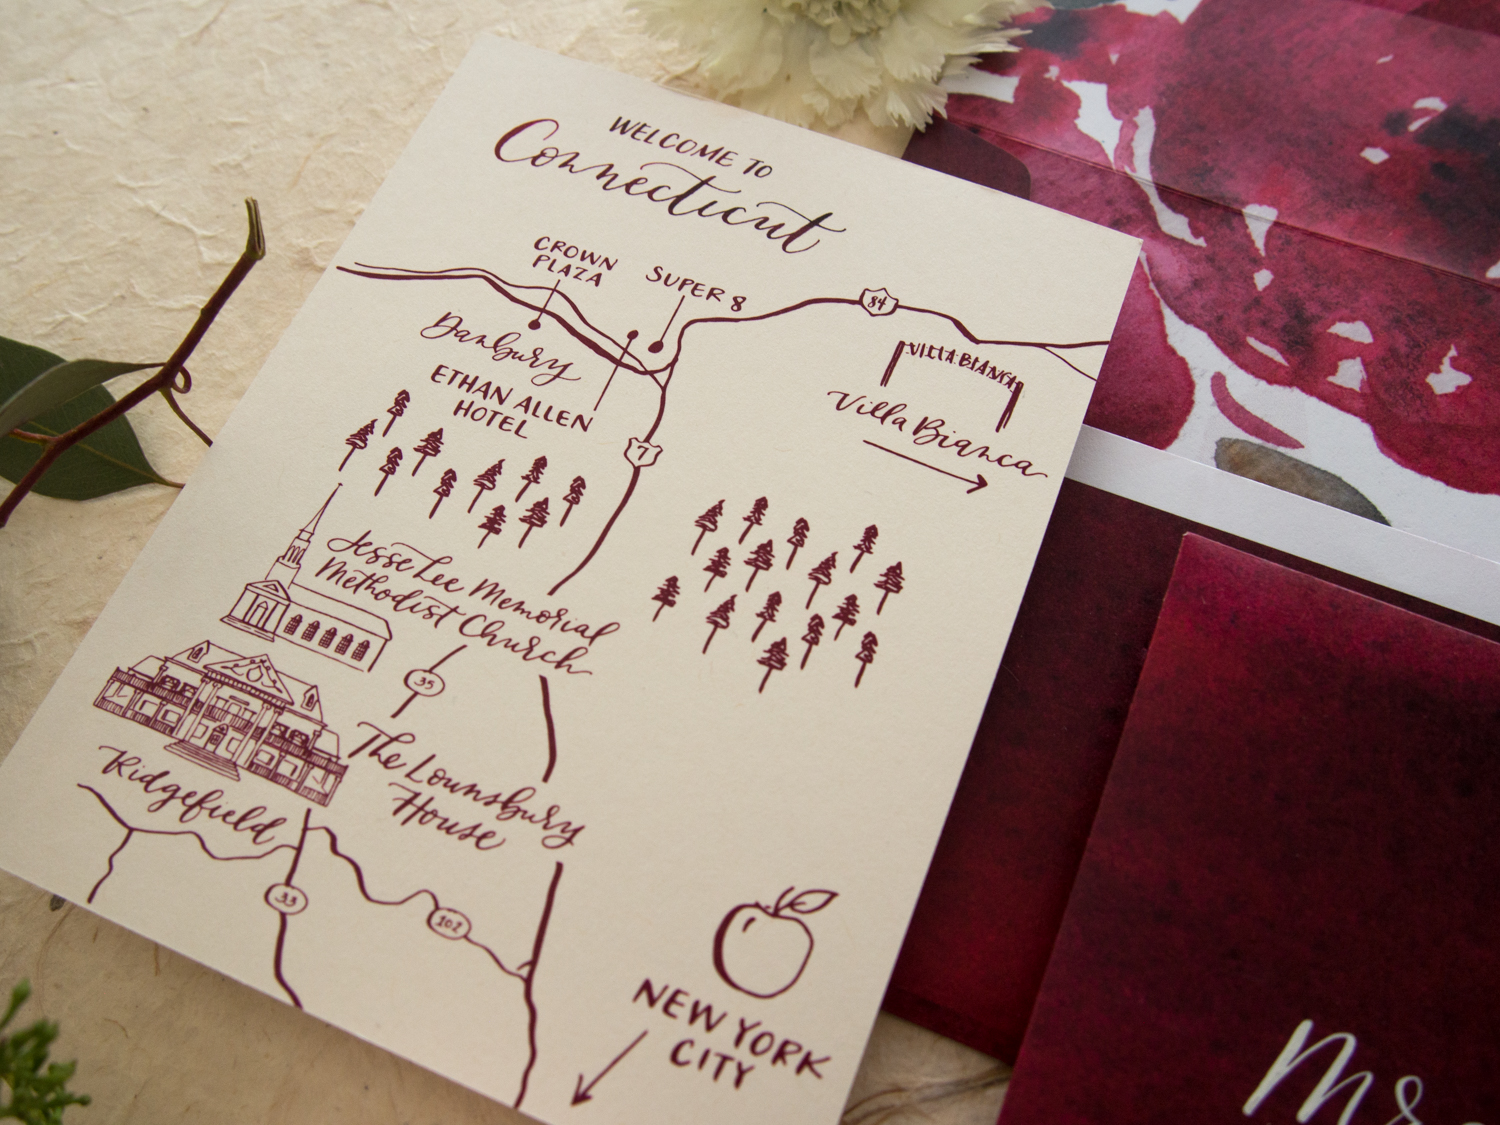 WELCOME TO
Connecticut
CROWN
PLAZA
SUPER 8
84
Danbury
VILLA BIANCA
Villa Bianca
ETHAN ALLEN
HOTEL
7
Jesse Lee Memorial
Methodist Church
35
The Lounsbury
House
Ridgefield
33
102
NEW YORK
CITY